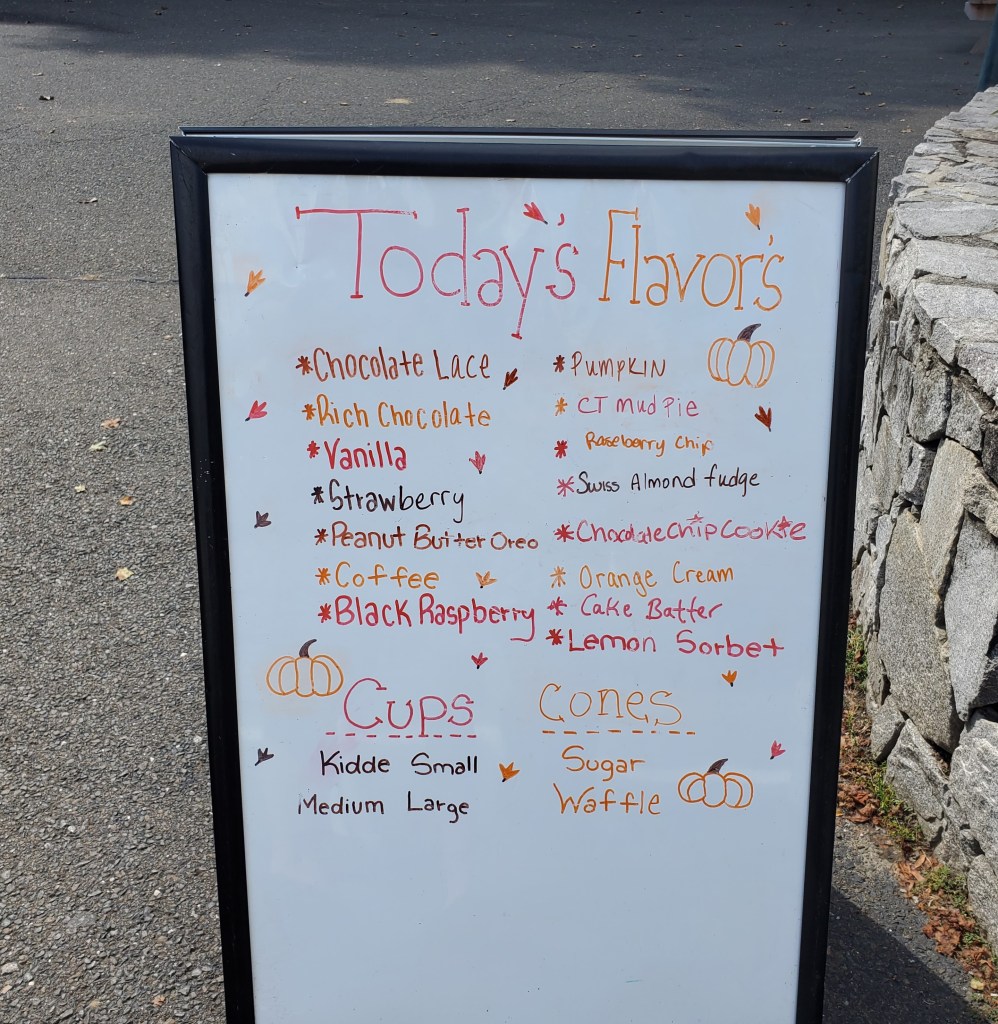 Today's Flavor's
*Chocolate Lace
*Rich Chocolate
*Vanilla
*Strawberry
*Peanut Butter Oreo
*Coffee
*Black Raspberry
*Pumpkin
* CT mud pie
* Raseberry Chip
*Swiss Almond fudge
*Chocolate Chip Cookie
* Orange Cream
* Cake Batter
*Lemon Sorbet
Cups
Kidde Small
Medium Large
Cones
Sugar
Waffle